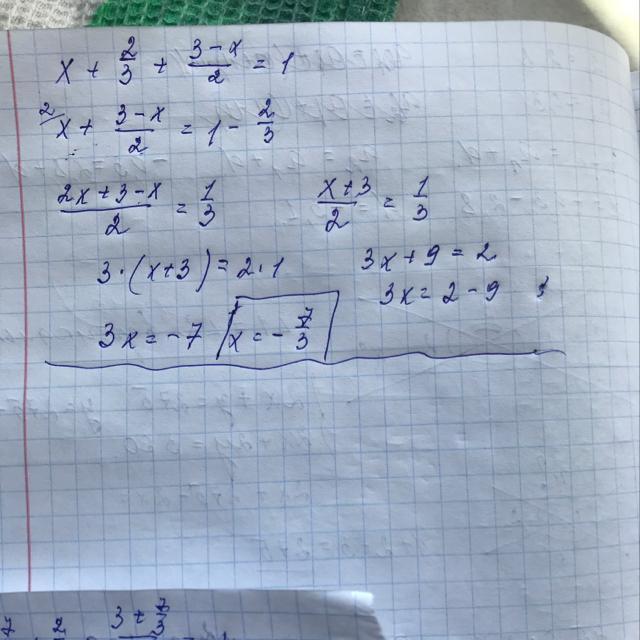 x + 2/3 + (3-x)/2 = 1
2 x + (3-x)/2 = 1 - 2/3
(2x+3-x)/2 = 1/3 (x+3)/2 = 1/3
3·(x+3) = 2·1 3x+9 = 2
3x = 2-9
3x = -7 x = -7/3